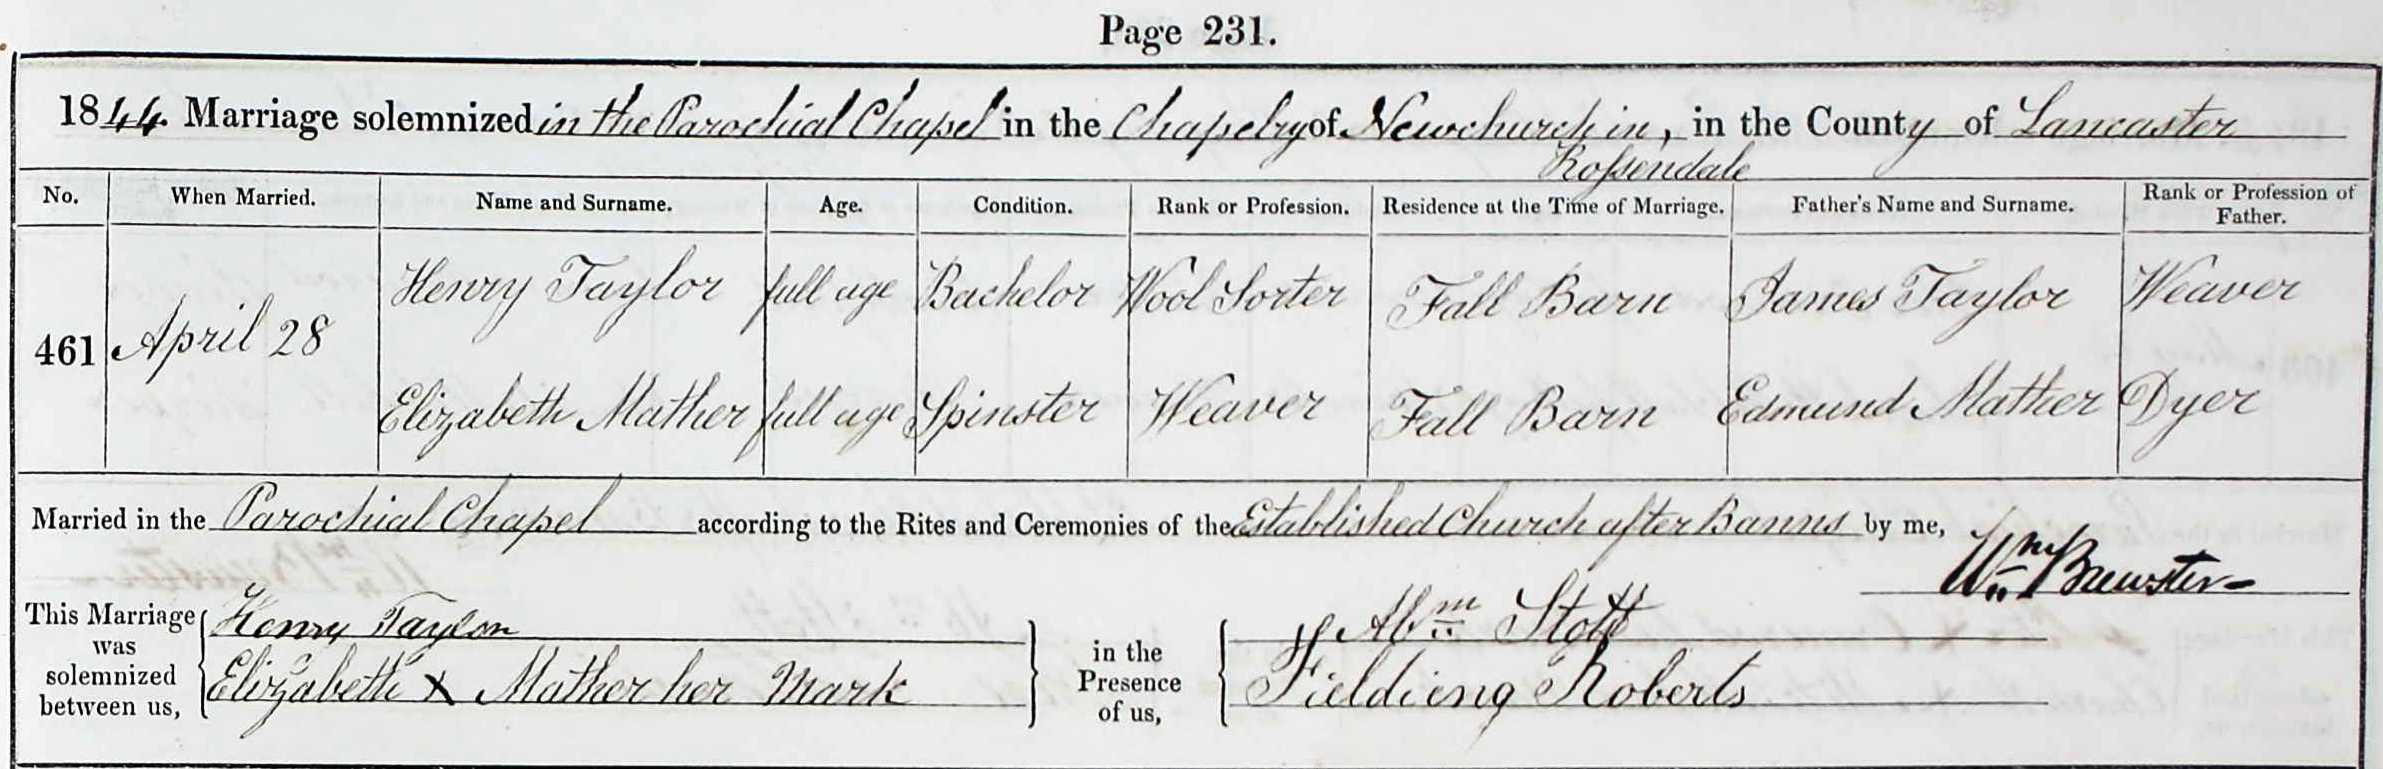 Page 231.
1844. Marriage solemnized in the Parochial Chapel in the Chapelry of Newchurch in, in the County of Lancaster
Rossendale
No. When Married. Name and Surname. Age. Condition. Rank or Profession. Residence at the Time of Marriage. Father's Name and Surname. Rank or Profession of Father.
Henry Taylor full age Bachelor Wool Sorter Fall Barn James Taylor Weaver
461 April 28
Elizabeth Mather full age Spinster Weaver Fall Barn Edmund Mather Dyer
Married in the Parochial Chapel according to the Rites and Ceremonies of the Established Church after Banns by me,
Wm Brewster
This Marriage was solemnized between us, Henry Taylor
Elizabeth X Mather her Mark
in the Presence of us, Abm Stott
Fielding Roberts